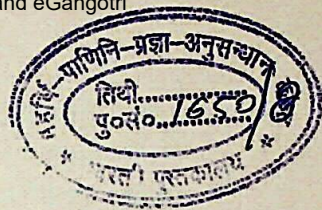 and eGangotri
महर्षि-पाणिनि-प्रज्ञा-अनुसन्धान
तिथी..............
पु०सं० 1650
* भारती पुस्तकालय *